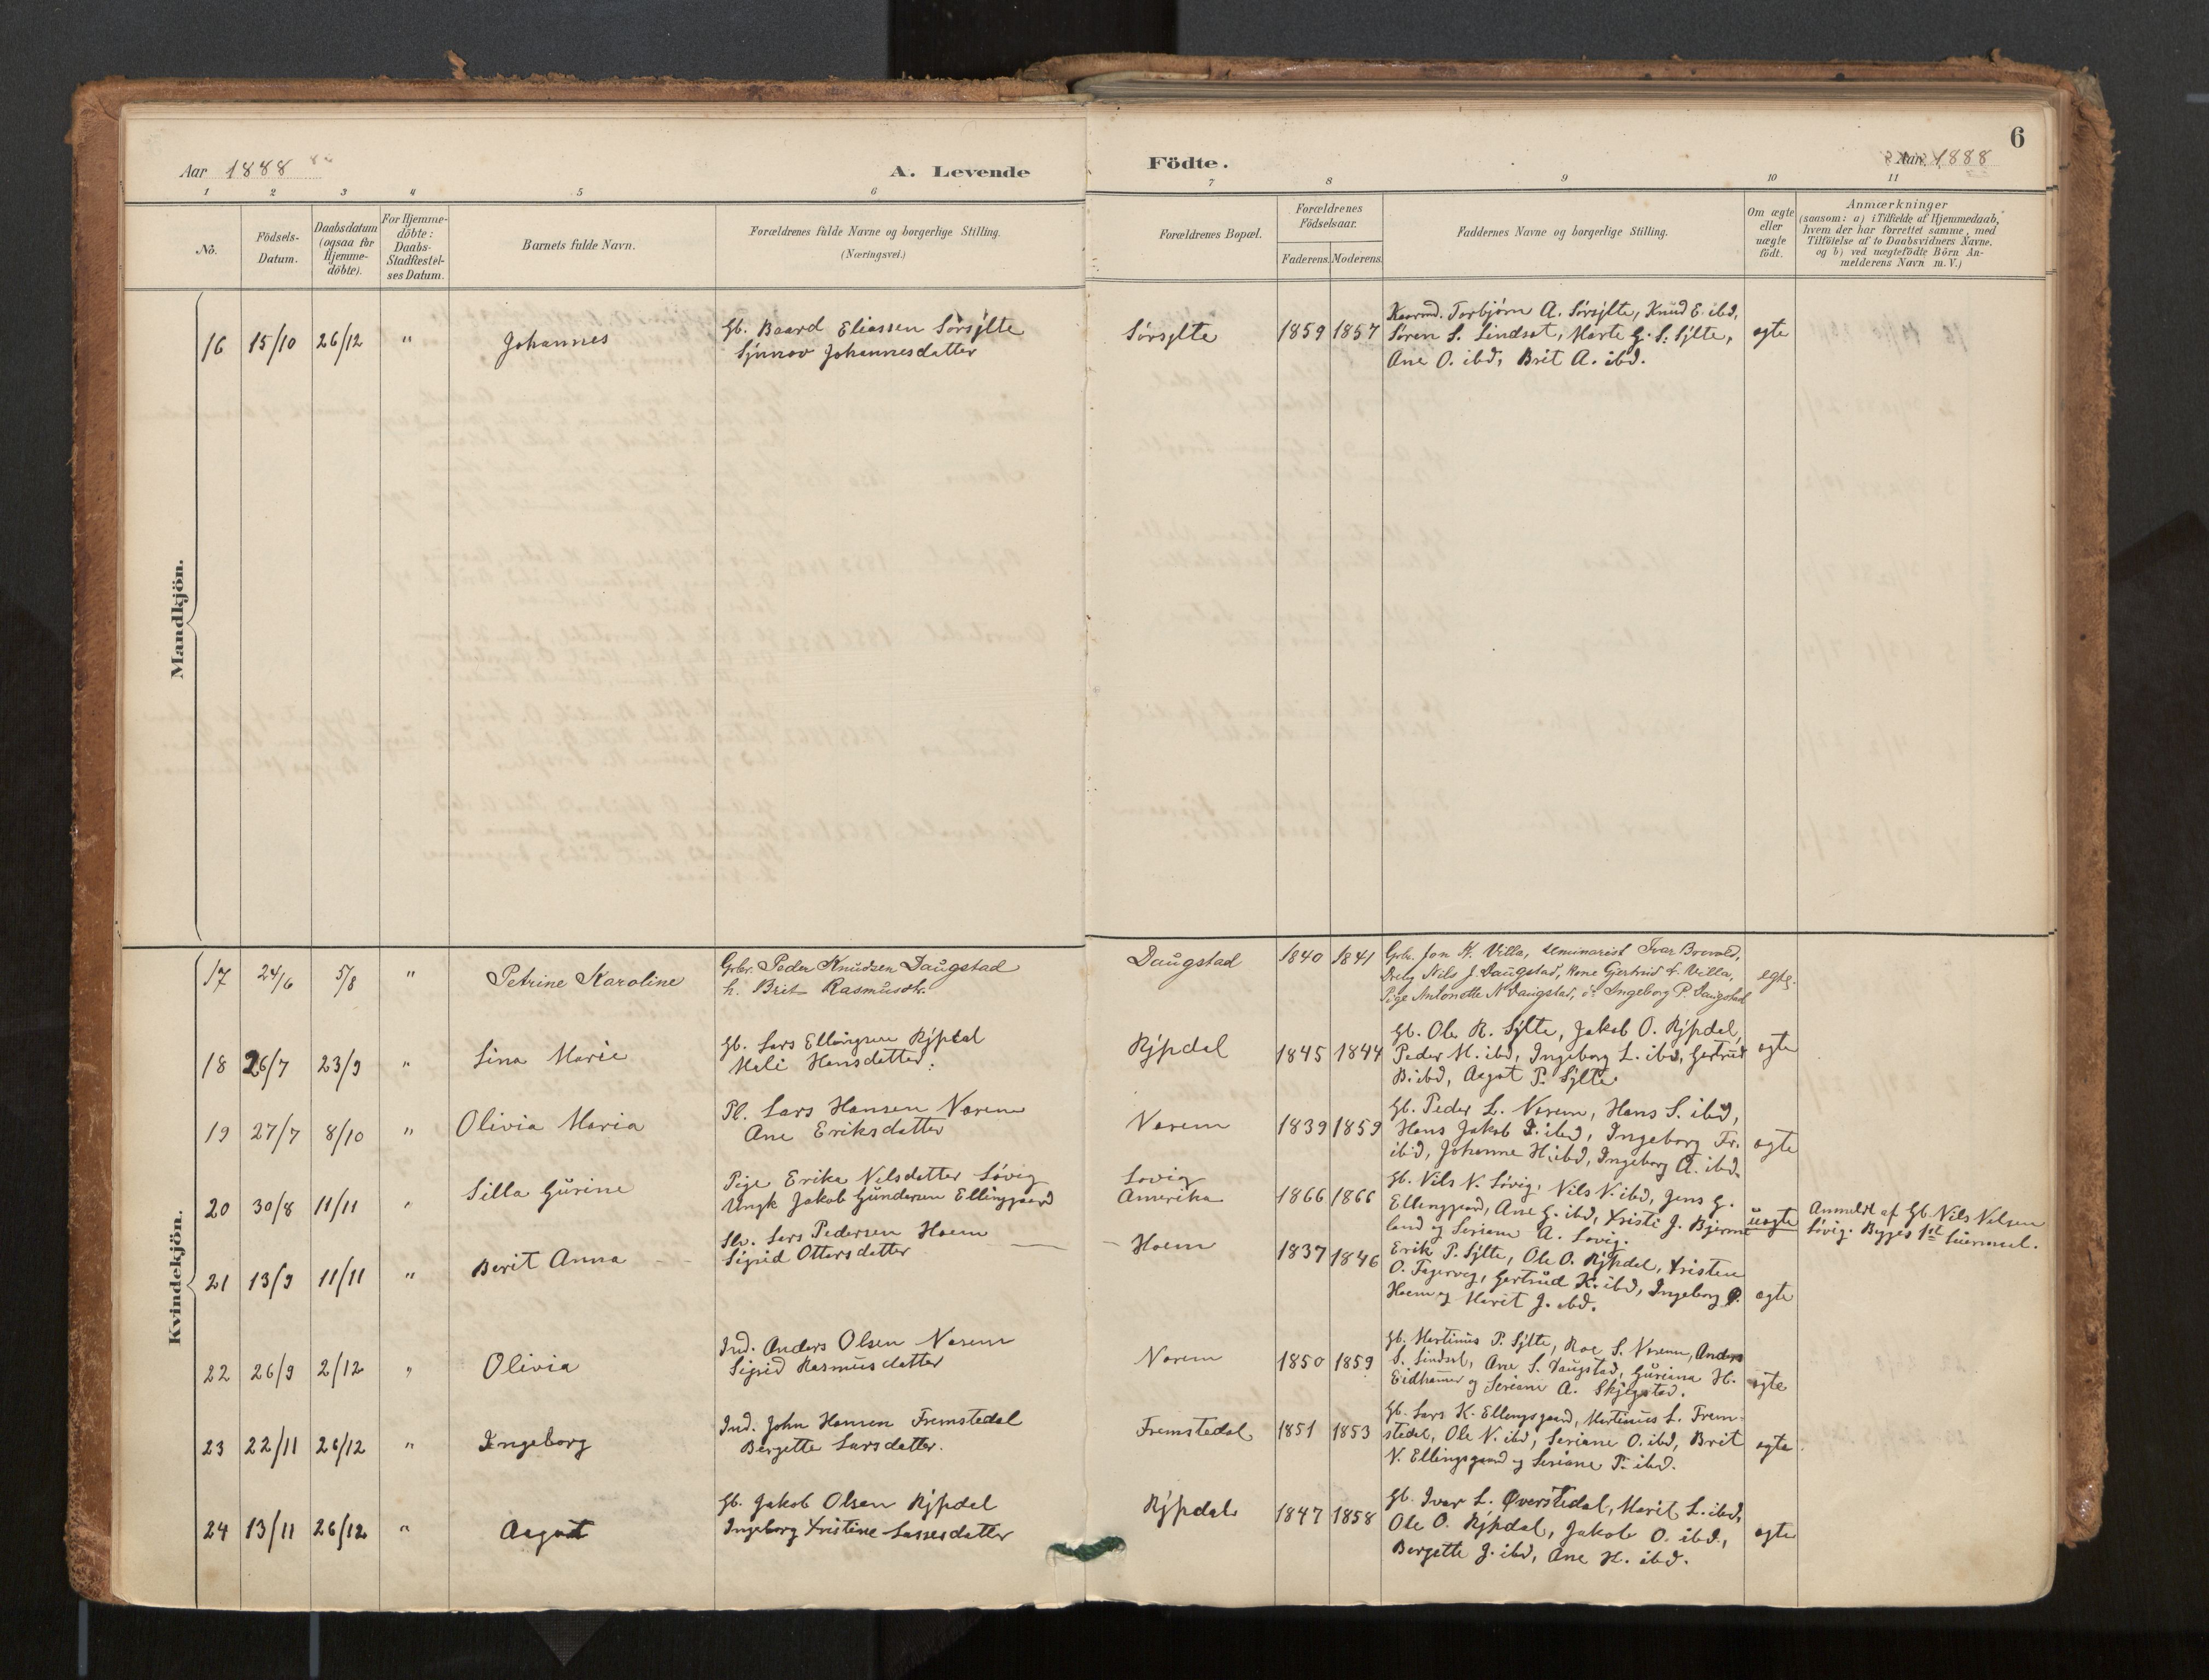 6
Aar 1888
A. Levende
Födte.
Aar 1888
1 2 3 4 5 6 7 8 9 10 11
No.
Födsels-
Datum.
Daabsdatum
(ogsaa for
Hjemme-
döbte).
For Hjemme-
döbte:
Daabs-
Stadfæstel-
ses Datum.
Barnets fulde Navn.
Forældrenes fulde Navne og borgerlige Stilling.
(Næringsvei.)
Forældrenes Bopæl.
Forældrenes
Födselsaar.
Faderens. Moderens.
Faddernes Navne og borgerlige Stilling.
Om ægte
eller
uægte
födt.
Anmærkninger
(saasom: a) i Tilfælde af Hjemmedaab,
hvem der har forrettet samme, med
Tilföielse af to Daabsvidners Navne.
og b) ved uægtefödte Börn An-
melderens Navn m. V.)
Mandkjön.
16 15/10 26/12 " Johannes
Gb. Baard Eliassen Sørsylte
Synnøv Johannesdatter
Sørsylte 1859 1857
Torbjørn A. Sørsylte, Knud E. ibd,
Søren S. Lindset, Marte G. S. Sylte,
Ane O. ibd, Brit A. ibd.
ægte
Kvindekjön.
17 24/6 5/8 " Petrine Karoline
Gbr. Peder Knudsen Daugstad
h. Brit Rasmusdtr.
Daugstad 1840 1841
Gbr. Jon K. Villa, Seminarist Ivar Brovold,
Nils J. Daugstad, Kone Gjertrud L. Villa,
Pige Antonette N Daugstad, do Ingeborg P. Daugstad
ægte.
18 26/7 23/9 " Lina Marie
Gb. Lars Ellingsen Rypdal
Mali Hansdatter.
Rypdal 1845 1844
Gb. Ole R. Sylte, Jakob O. Rypdal,
Peder M. ibd, Ingeborg L. ibd, Gertrud
B. ibd, Aagot P. Sylte.
ægte
19 27/7 8/10 " Olivia Maria
Pl. Lars Hansen Narem
Ane Eriksdatter
Narem 1839 1859
Gb. Peder L. Narem, Hans S. ibd,
Hans Jakob P. ibd, Ingeborg Fr.
ibid, Johanne H. ibd, Ingeborg A. ibd.
ægte
20 30/8 11/11 " Silla Gurine
Pige Erika Nilsdatter Løvig
Ungk Jakob Gundersen Ellingsgaard
Løvig
Amerika
1866 1866
Gb. Nils N. Løvig, Nils N. ibd, Jens G.
Ellingsgaard, Ane G. ibd, Kristi J. Bjerme
land og Seriane A. Løvig.
uægte
Anmeldt af Gb. Nils Nilsen
Løvig. Begges 1st Leiermaal.
21 13/9 11/11 " Berit Anna
Slv. Lars Pedersen Hoem
Sigrid Ottersdatter
Hoem 1837 1846
Erik P. Sylte, Ole O. Rypdal, Kristen
O. Fagervig, Gertrud K. ibd, Ingeborg P.
Hoem og Marit J. ibd.
ægte
22 26/9 2/12 " Olivia
Ind. Anders Olsen Narem
Sigrid Rasmusdatter
Narem 1850 1859
Gb. Martinus P. Sylte, Roe S. Narem, Anders
S. Lindset, Ane S. Daugstad, Guriana H.
Eidhammer og Seriane A. Skjegstad.
ægte
23 22/11 26/12 " Ingeborg
Ind. John Hansen Fremstedal
Bergette Larsdatter.
Fremstedal 1851 1853
Gb. Lars K. Ellingsgaard, Martinus L. Frem-
stedal, Ole N. ibd, Seriane O. ibd, Brit
N. Ellingsgaard og Seriane P. ibd.
ægte
24 13/11 26/12 " Aagot
Gb. Jakob Olsen Rypdal
Ingeborg Kristine Lassesdatter
Rypdal 1847 1858
Gb. Ivar L. Øverstedal, Marit L. ibd,
Ole O. Rypdal, Jakob O. ibd.,
Bergette J. ibd, Ane H. ibd.
ægte